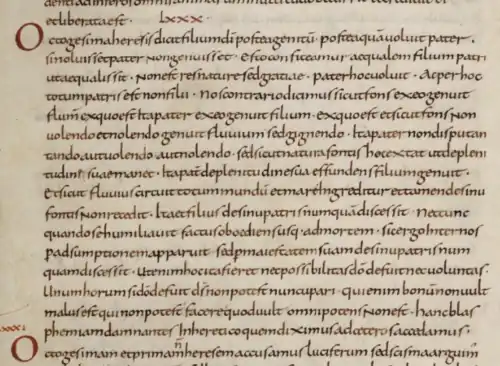 et liberata est · LXXX ·
Octogesima heresis dicit filium dī posteagenitū · posteaquā voluit pater ·
si noluisset pater nongenuisset · et si confiteamur aequalem filium patri
vita aequalis sit · Non est res naturae sed gratiae · pater hoc voluit · Ac per hoc
totum patris est non filii · Nos contrario dicamus sicut fons exeo genuit
flum̄ ex quo est Ita pater ex eo genuit filium · ex quo est et sicut fons Non
volendo et nolendo genuit fluvium sed gignendo · Ita pater non disputan
tando aut volendo aut nolendo · sed sicut natura fontis hoc extat ut de pleni
tudine sua emanet · Ita pat̄ de plenitudine sua effundens filium genuit ·
et sicut fluvius circuit totum mundū et mare Ingreditur et tamen de sinu
fontis Non recedit · Ita et filius de sinu patris numquā discessit · Nec tunc
quando se humiliavit factus oboediens usq· ad mortem · sic ergo Inter nos
p adsumptionem apparuit sed p maiestatem suam de sinu patris num
quam discessit · Ut enim hoc ita fieret nec possibilitas dō defuit nec voluntas ·
Unum horum si dō defuit dŝ non potest nuncupari · qui enim bonū non vult
malus est qui non potest facere quod vult omnipotens Non est · hanc blas
phemiam damnantes In heretico quem diximus ad cetero saccedamus ·
Octogesimam et primam heresem accusamus luciferum sed scisma arguim̄